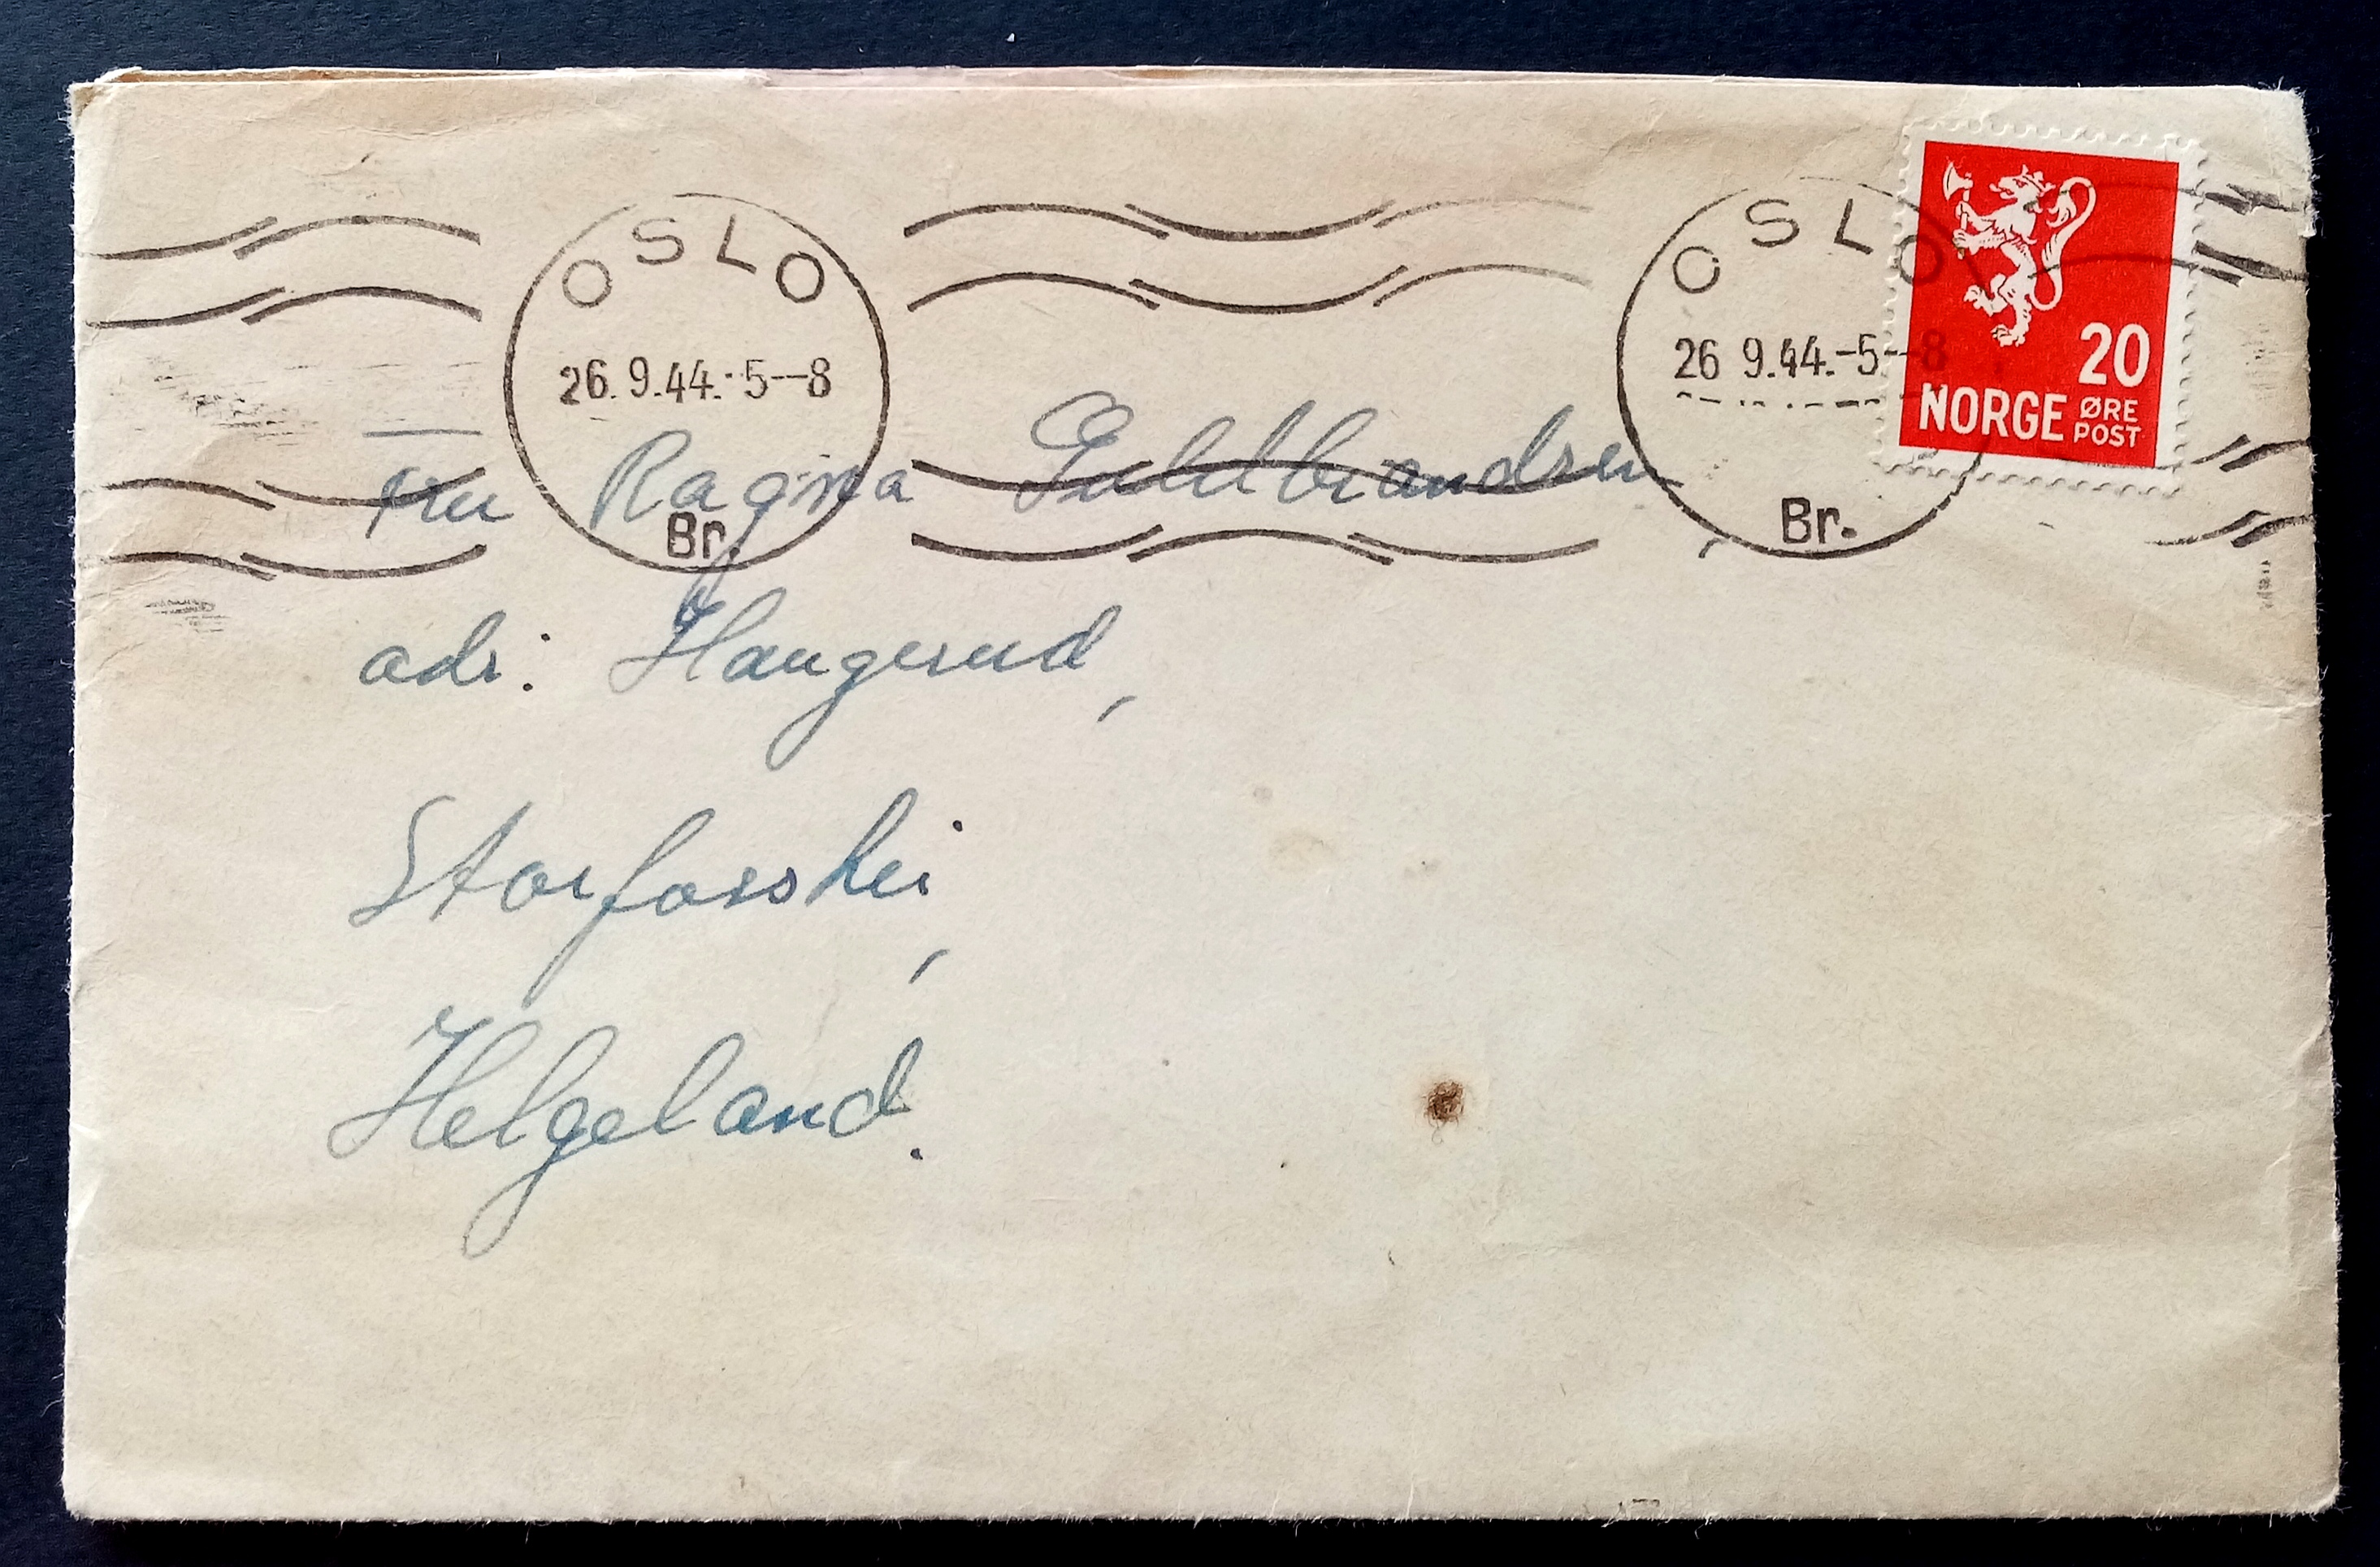 OSLO
26.9.44.-5--8
Br.
OSLO
26 9.44.-5--8
Br.
20
NORGE ØRE
POST
Fru Ragna Guldbrandsen,
adr: Haugerud,
Storforshei,
Helgeland.